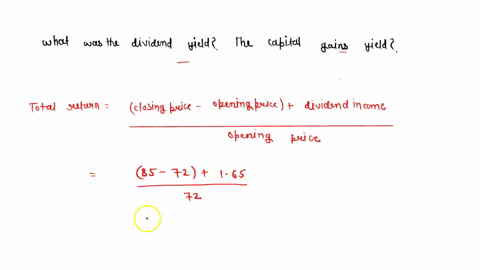 what was the dividend yield? The capital gains yield?
Total return = (closing price - opening price) + dividend income
opening price
= (85 - 72) + 1.65
72